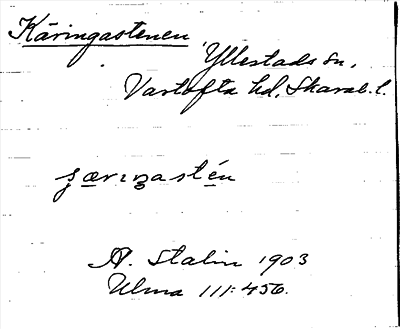 Käringastenen
Yllestads sn,
Vartofta hd, Skarab. l.
ʂæriŋastén
A. Stalin 1903
Ulma 111:456.